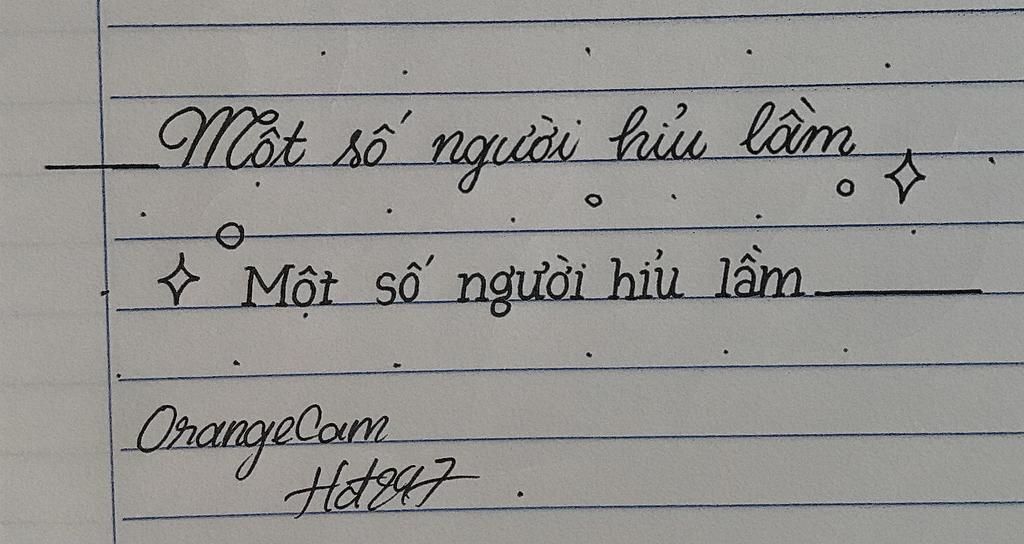 Một số người hiủ lầm
Một số người hiủ lầm
OrangeCam
Hot247